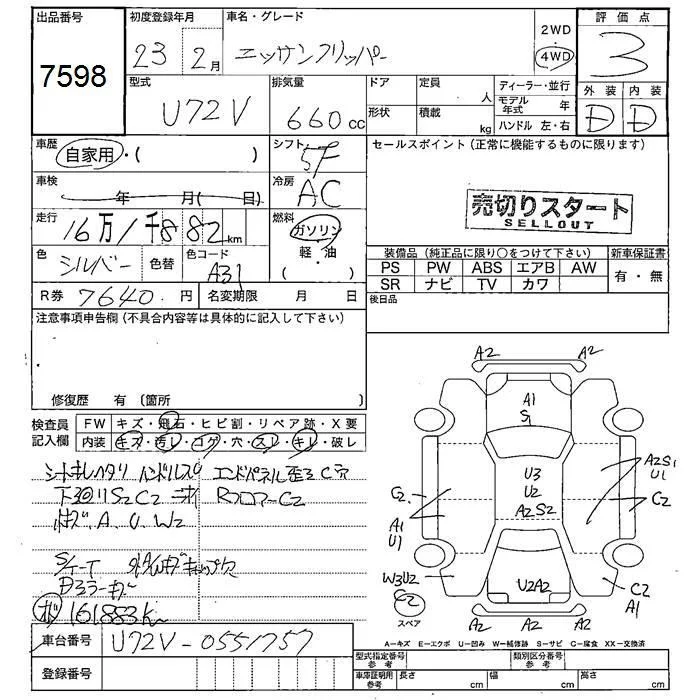 出品番号
7598
初度登録年月
23 2月
車名・グレード
ニッサンクリッパー
2WD
4WD
評価点
3
型式
U72V
排気量
660cc
ドア
形状
定員
人
積載
kg
ディーラー・並行
モデル年式 年
ハンドル 左・右
外装 内装
D D
車歴
自家用・( )
シフト
5F
セールスポイント(正常に機能するものに限ります)
車検
年 月( 日)
冷房
AC
売切りスタート
SELLOUT
走行
16万1千882km
燃料
ガソリン
軽・油
( )
色
シルバー
色替
色コード
A31
装備品(純正品に限り○をつけて下さい)
新車保証書
PS PW ABS エアB AW
SR ナビ TV カワ
有・無
R券 7640円
名変期限 月 日
後日品
注意事項申告欄(不具合内容等は具体的に記入して下さい)
修復歴 有 (箇所 )
検査員
記入欄
FW キズ・飛石・ヒビ割・リペア跡・X要
内装 キズ・汚レ・コゲ・穴・スレ・キレ・破レ
シートキレヘタリ ハンドルスレ
エンドパネル歪ミC穴
RフロアーC2
A、U、W2
161883k
A2 A2
A1
S1
U3
U2
A2 S2
U2A2
C2
A1
U1
A2S1
U1
C2
W3U2
C2
スペア
C2
A1
A2 A2 A2
A−キズ E−エクボ U−凹み W−補修跡 S−サビ C−腐食 XX−交換済
車台番号
U72V-0551757
登録番号
型式指定番号
参考
類別区分番号
参考
車庫証明用
参考
長さ cm
幅 cm
高さ cm